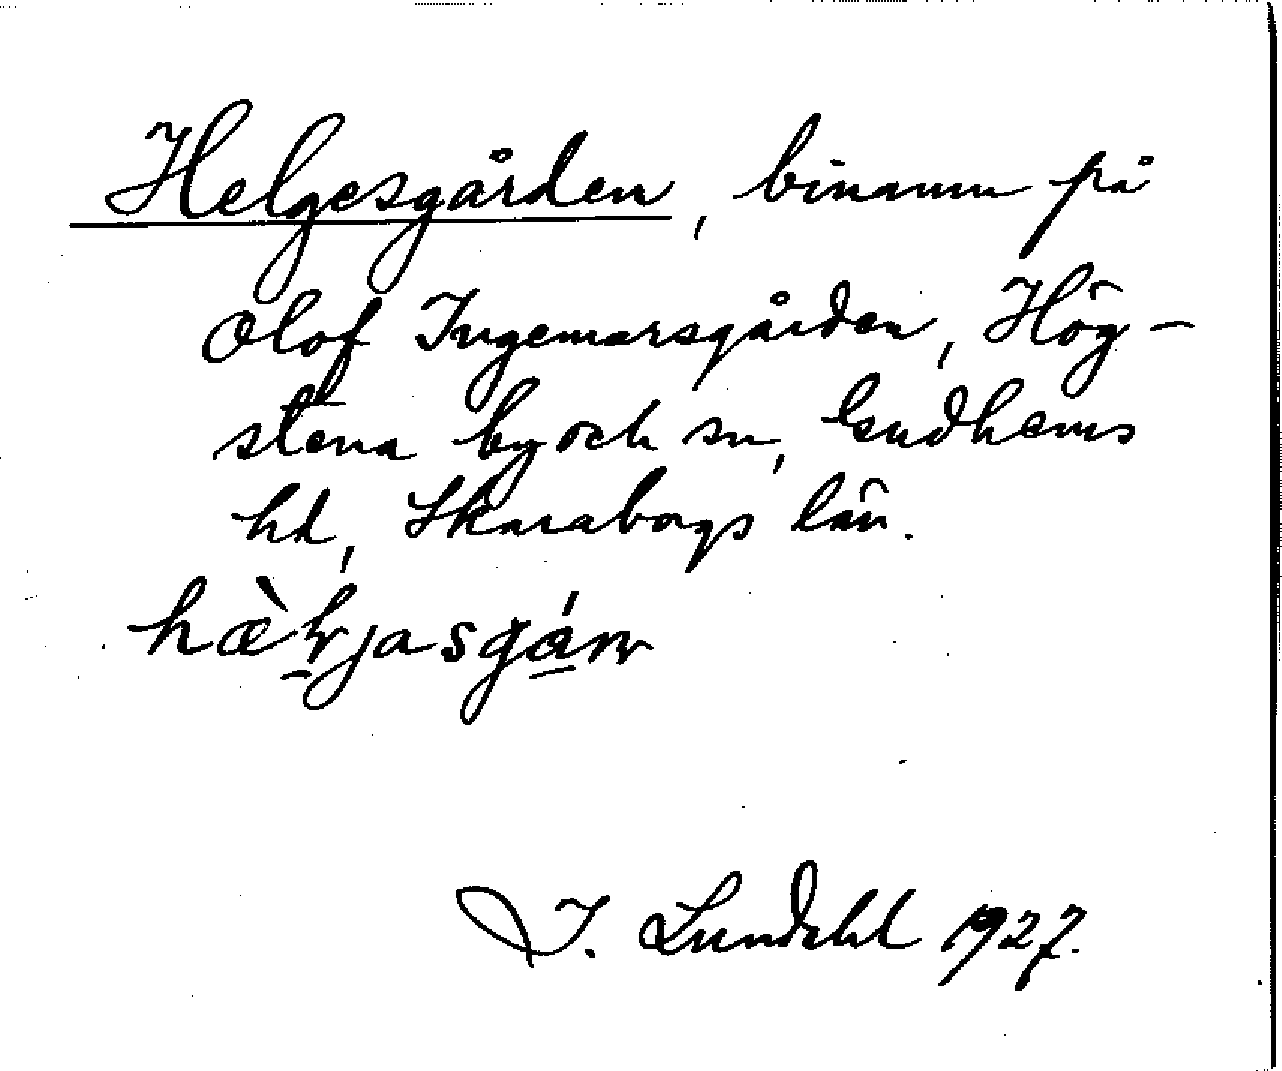 Helgesgården, binamn på
Olof Ingemarsgården, Hög-
stena by och sn, Gudhems
hd, Skaraborgs län.
I. Lundahl 1927.